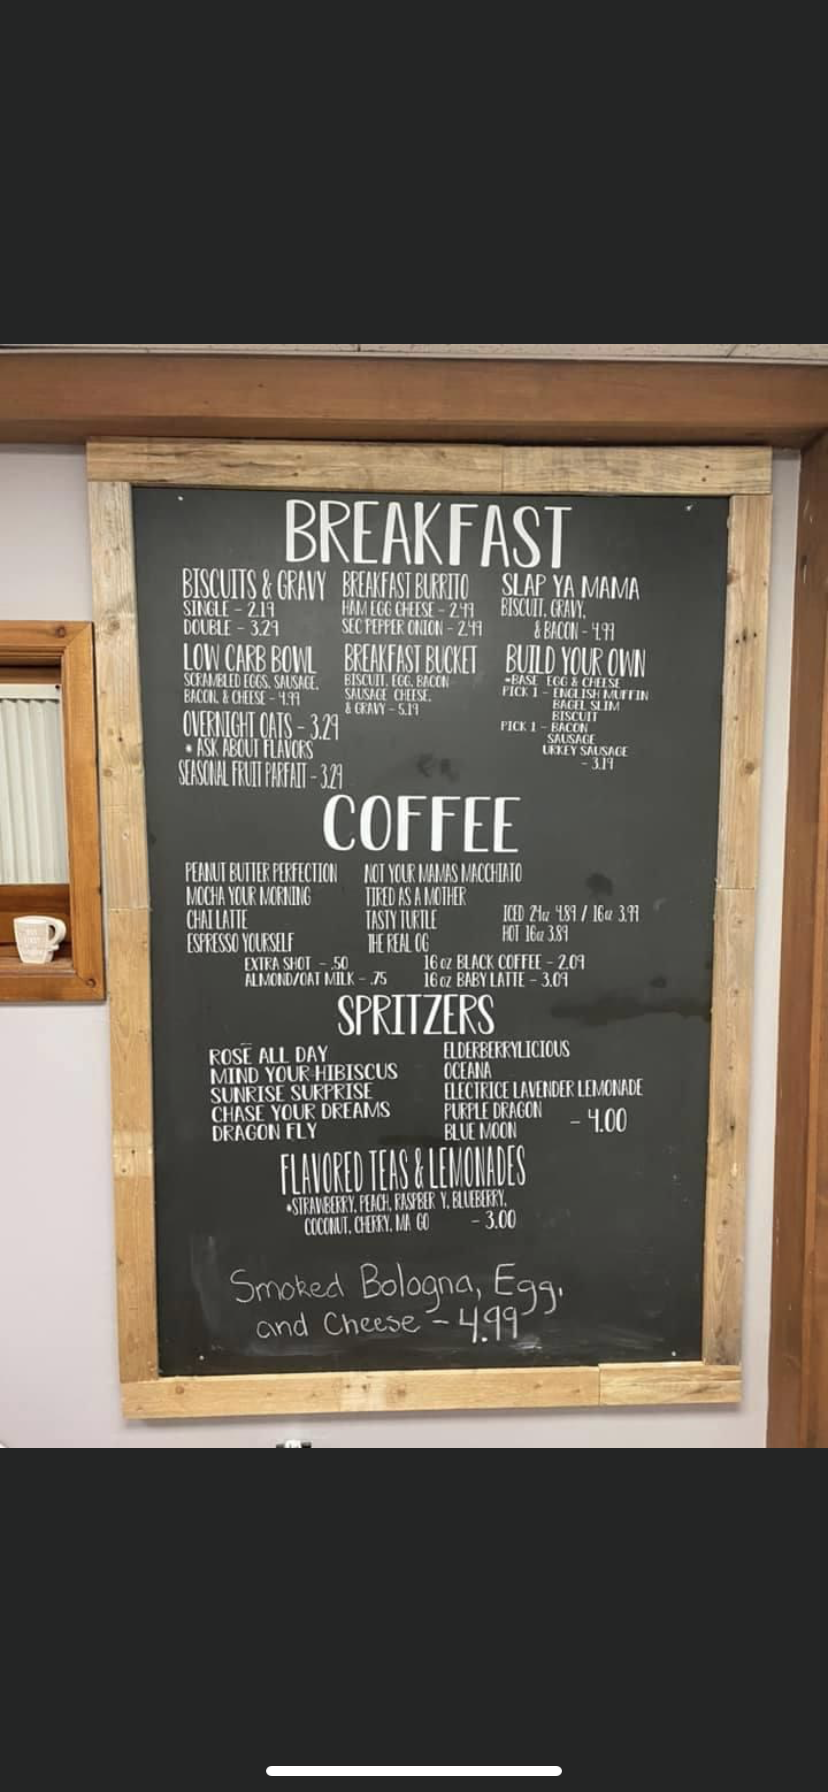 BREAKFAST
BISCUITS & GRAVY
SINGLE - 2.19
DOUBLE - 3.29
BREAKFAST BURRITO
HAM EGG CHEESE - 2.49
SEC PEPPER ONION - 2.49
SLAP YA MAMA
BISCUIT, GRAVY,
& BACON - 4.99
LOW CARB BOWL
SCRAMBLED EGGS, SAUSAGE,
BACON, & CHEESE - 4.99
BREAKFAST BUCKET
BISCUIT, EGG, BACON
SAUSAGE CHEESE,
& GRAVY - 5.19
BUILD YOUR OWN
*BASE EGG & CHEESE
PICK 1 - ENGLISH MUFFIN
BAGEL SLIM
BISCUIT
PICK 1 - BACON
SAUSAGE
URKEY SAUSAGE
- 3.19
OVERNIGHT OATS - 3.29
* ASK ABOUT FLAVORS
SEASONAL FRUIT PARFAIT - 3.29
COFFEE
PEANUT BUTTER PERFECTION
MOCHA YOUR MORNING
CHAI LATTE
ESPRESSO YOURSELF
NOT YOUR MAMAS MACCHIATO
TIRED AS A MOTHER
TASTY TURTLE
THE REAL OG
ICED 24oz 4.89 / 16oz 3.99
HOT 16oz 3.89
EXTRA SHOT - .50
ALMOND/OAT MILK - .75
16 oz BLACK COFFEE - 2.09
16 oz BABY LATTE - 3.09
SPRITZERS
ROSE ALL DAY
MIND YOUR HIBISCUS
SUNRISE SURPRISE
CHASE YOUR DREAMS
DRAGON FLY
ELDERBERRYLICIOUS
OCEANA
ELECTRICE LAVENDER LEMONADE
PURPLE DRAGON
BLUE MOON
- 4.00
FLAVORED TEAS & LEMONADES
*STRAWBERRY, PEACH, RASPBER Y, BLUEBERRY,
COCONUT, CHERRY, MA GO - 3.00
Smoked Bologna, Egg,
and Cheese - 4.99